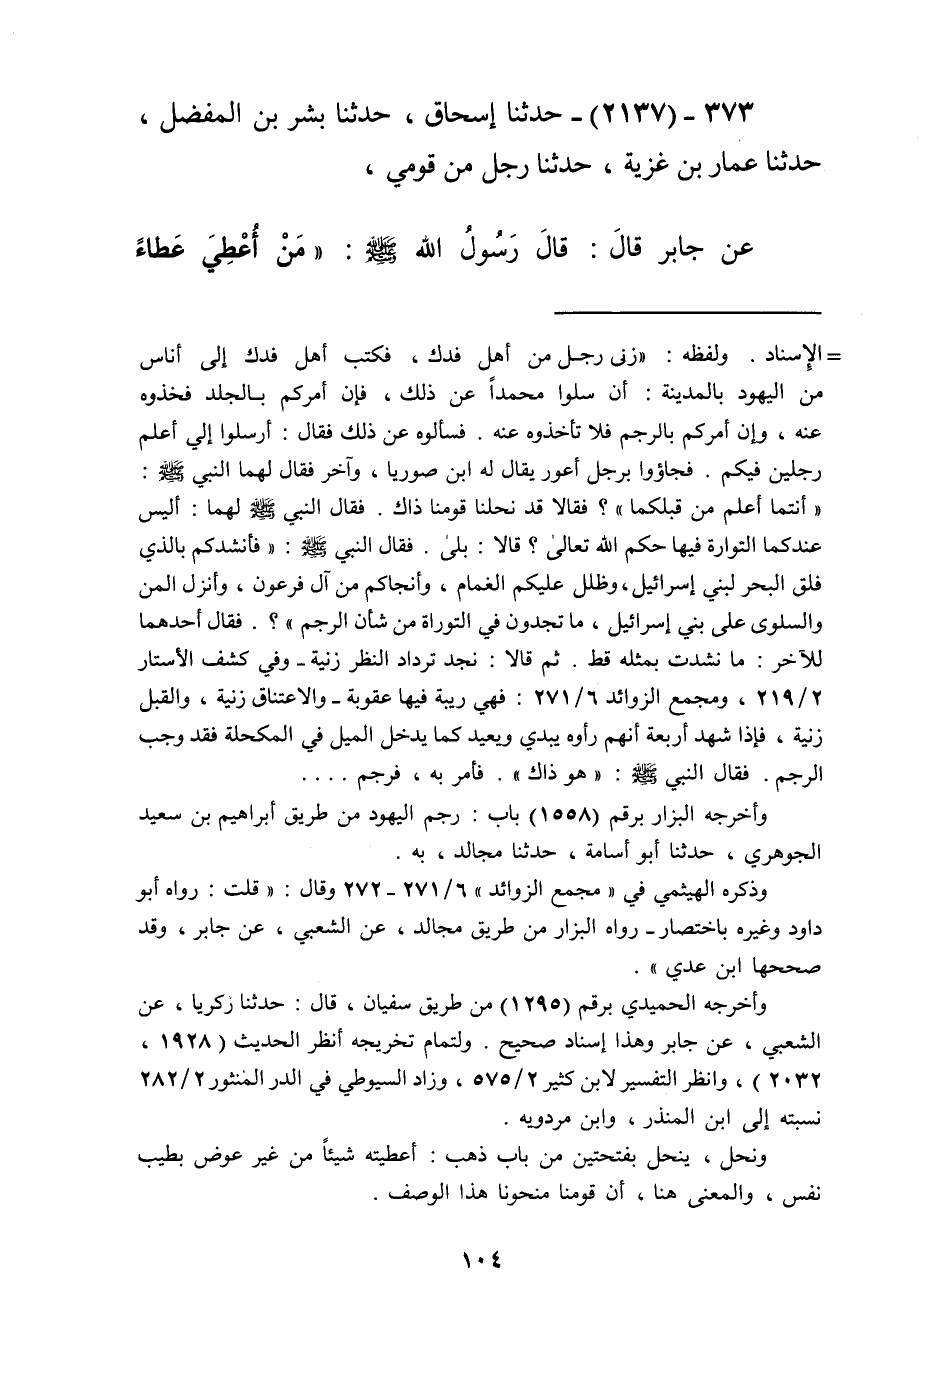 ٣٧٣ - (٢١٣٧) - حدثنا إسحاق ، حدثنا بشر بن المفضل ،
حدثنا عمار بن غزية ، حدثنا رجل من قومي ،
عن جابر قالَ : قالَ رَسُولُ الله ﷺ : « مَنْ أُعْطِيَ عَطاءً
= الإِسناد . ولفظه : «زنى رجل من أهل فدك ، فكتب أهل فدك إلى أناس
من اليهود بالمدينة : أن سلوا محمداً عن ذلك ، فإن أمركم بالجلد فخذوه
عنه ، وإن أمركم بالرجم فلا تأخذوه عنه . فسألوه عن ذلك فقال : أرسلوا إلي أعلم
رجلين فيكم . فجاؤوا برجل أعور يقال له ابن صوريا ، وآخر فقال لهما النبي ﷺ :
« أنتما أعلم من قبلكما » ؟ فقالا قد نحلنا قومنا ذاك . فقال النبي ﷺ لهما : أليس
عندكما التوارة فيها حكم الله تعالىٰ ؟ قالا : بلىٰ . فقال النبي ﷺ : « فأنشدكم بالذي
فلق البحر لبني إسرائيل، وظلل عليكم الغمام ، وأنجاكم من آل فرعون ، وأنزل المن
والسلوى على بني إسرائيل ، ما تجدون في التوراة من شأن الرجم » ؟ . فقال أحدهما
للآخر : ما نشدت بمثله قط . ثم قالا : نجد ترداد النظر زنية - وفي كشف الأستار
٢١٩/٢ ، ومجمع الزوائد ٢٧١/٦ : فهي ريبة فيها عقوبة - والاعتناق زنية ، والقبل
زنية ، فإذا شهد أربعة أنهم رأوه يبدي ويعيد كما يدخل الميل في المكحلة فقد وجب
الرجم . فقال النبي ﷺ : « هو ذاك » . فأمر به ، فرجم . . . .
وأخرجه البزار برقم (١٥٥٨) باب : رجم اليهود من طريق أبراهيم بن سعيد
الجوهري ، حدثنا أبو أسامة ، حدثنا مجالد ، به .
وذكره الهيثمي في « مجمع الزوائد » ٢٧١/٦ - ٢٧٢ وقال : « قلت : رواه أبو
داود وغيره باختصار - رواه البزار من طريق مجالد ، عن الشعبي ، عن جابر ، وقد
صححها ابن عدي » .
وأخرجه الحميدي برقم (١٢٩٥) من طريق سفيان ، قال : حدثنا زكريا ، عن
الشعبي ، عن جابر وهذا إسناد صحيح . ولتمام تخريجه أنظر الحديث ( ١٩٢٨ ،
٢٠٣٢ ) ، وانظر التفسير لابن كثير ٥٧٥/٢ ، وزاد السيوطي في الدر المنثور ٢٨٢/٢
نسبته إلى ابن المنذر ، وابن مردويه .
ونحل ، ينحل بفتحتين من باب ذهب : أعطيته شيئاً من غير عوض بطيب
نفس ، والمعنى هنا ، أن قومنا منحونا هذا الوصف .
١٠٤